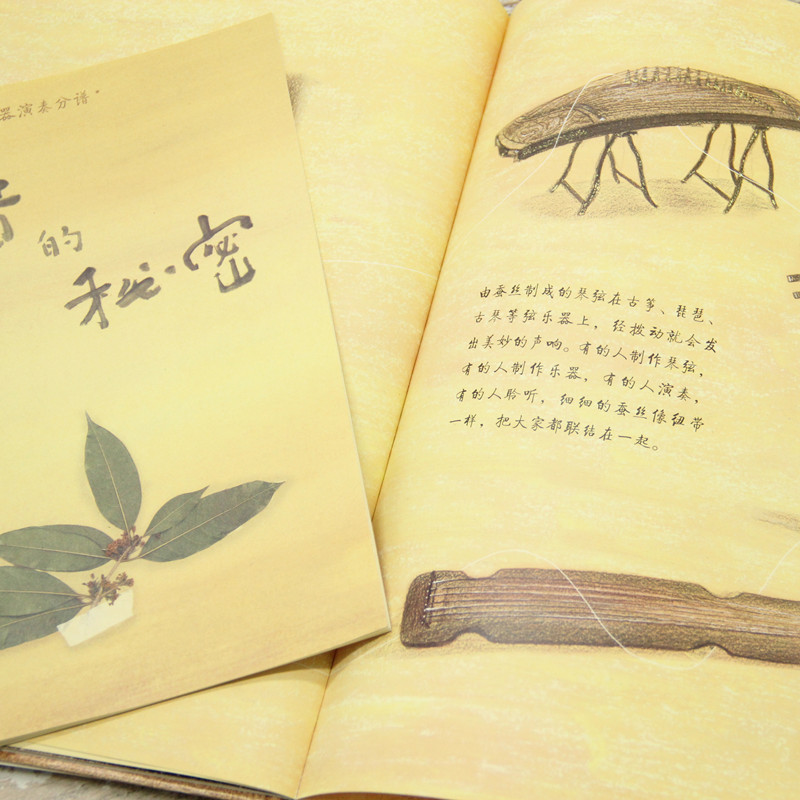 器演奏分谱
的
秘密
由蚕丝制成的琴弦在古筝、琵琶、
古琴等弦乐器上，轻拨动就会发
出美妙的声响。有的人制作琴弦，
有的人制作乐器，有的人演奏，
有的人聆听，细细的蚕丝像纽带
一样，把大家都联结在一起。